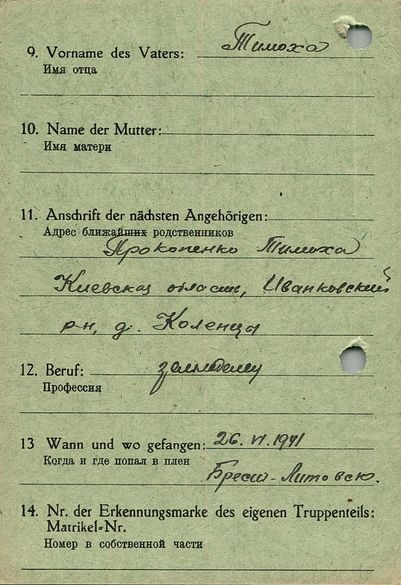 9. Vorname des Vaters: Тимоха
Имя отца
10. Name der Mutter:
Имя матери
11. Anschrift der nächsten Angehörigen:
Адрес ближайших родственников
Прокопенко Тимоха
Киевская область, Иванковский
р-н, д. Коленца
12. Beruf:
Профессия
13 Wann und wo gefangen: 26. VI. 1941
Когда и где попал в плен
Брест-Литовск.
14. Nr. der Erkennungsmarke des eigenen Truppenteils:
Matrikel-Nr.
Номер в собственной части